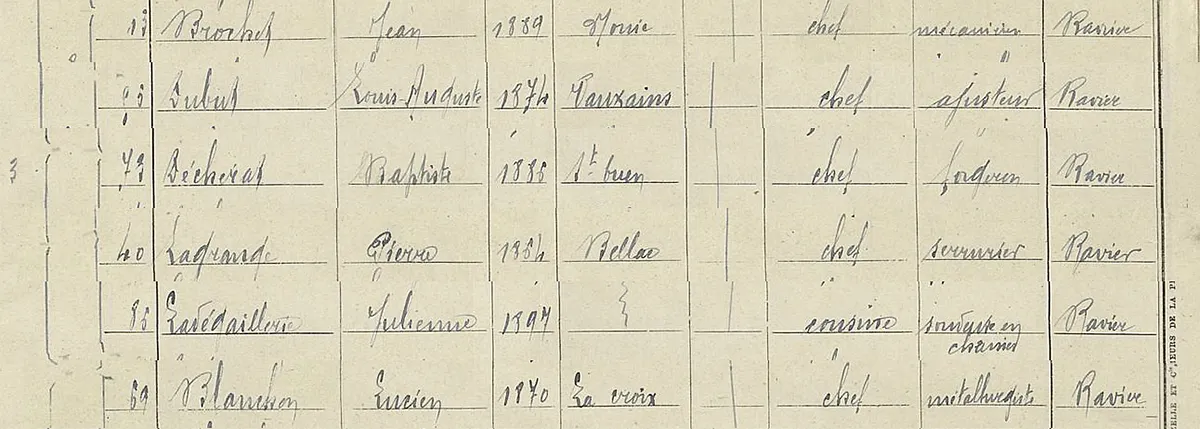 13 Brochet Jean 1889 chef mécanicien Ravier
Dubut Louis-Auguste 1874 chef ajusteur Ravier
3 73 Décherat Baptiste 1885 chef forgeron Ravier
40 Lagrange Pierre 1854 Bellac chef serrurier Ravier
85 Julienne 1897 cousine soudeuse en
chaînes Ravier
69 Blanchon Lucien 1870 La croix chef métallurgiste Ravier